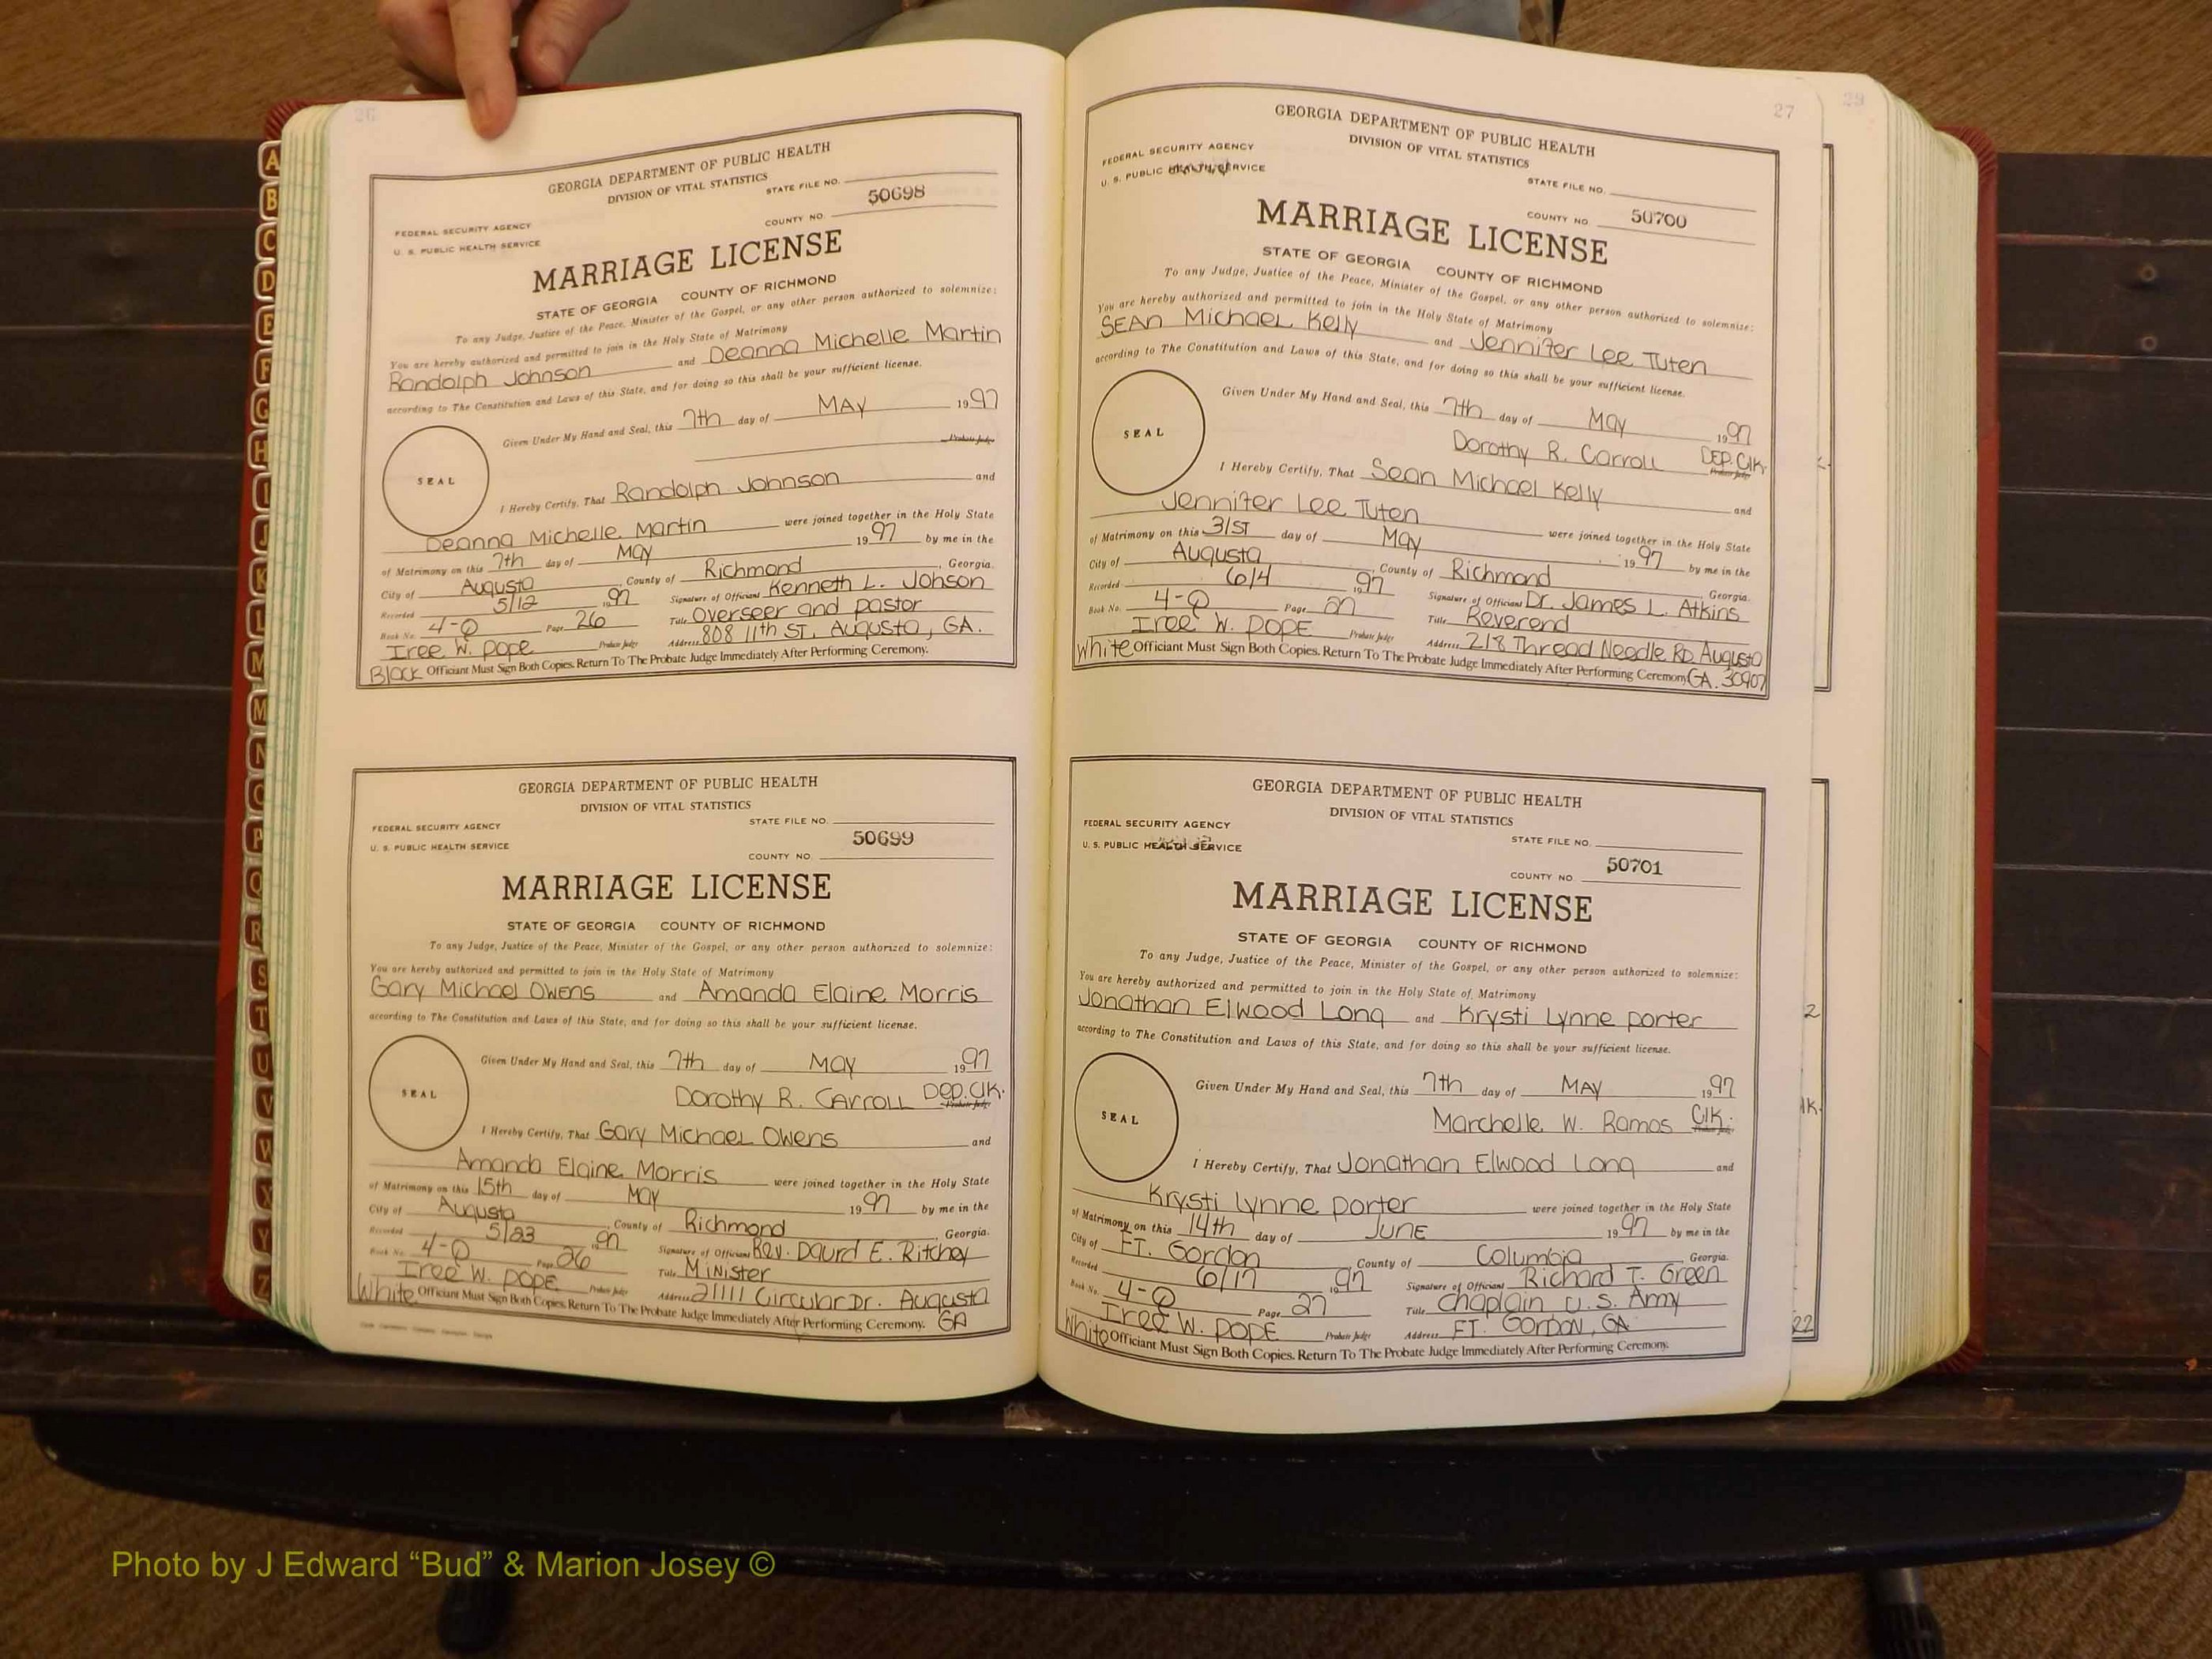 26
GEORGIA DEPARTMENT OF PUBLIC HEALTH
DIVISION OF VITAL STATISTICS
STATE FILE NO.
50698
COUNTY NO.
FEDERAL SECURITY AGENCY
U. S. PUBLIC HEALTH SERVICE
MARRIAGE LICENSE
STATE OF GEORGIA COUNTY OF RICHMOND
To any Judge, Justice of the Peace, Minister of the Gospel, or any other person authorized to solemnize:
You are hereby authorized and permitted to join in the Holy State of Matrimony
Randolph Johnson and Deanna Michelle Martin
according to The Constitution and Laws of this State, and for doing so this shall be your sufficient license.
Given Under My Hand and Seal, this 7th day of MAY 1997
Probate Judge
SEAL
I Hereby Certify, That Randolph Johnson and
Deanna Michelle Martin were joined together in the Holy State
of Matrimony on this 7th day of May 1997 by me in the
City of Augusta, County of Richmond, Georgia.
Recorded 5/12 1997 Signature of Officiant Kenneth L. Johson
Book No. 4-Q Page 26 Title Overseer and pastor
Iree W. Pope Probate Judge Address 808 11th ST. Augusta, GA.
Black Officiant Must Sign Both Copies. Return To The Probate Judge Immediately After Performing Ceremony.
GEORGIA DEPARTMENT OF PUBLIC HEALTH
DIVISION OF VITAL STATISTICS
STATE FILE NO.
FEDERAL SECURITY AGENCY
50699
U. S. PUBLIC HEALTH SERVICE
COUNTY NO.
MARRIAGE LICENSE
STATE OF GEORGIA COUNTY OF RICHMOND
To any Judge, Justice of the Peace, Minister of the Gospel, or any other person authorized to solemnize:
You are hereby authorized and permitted to join in the Holy State of Matrimony
Gary Michael Owens and Amanda Elaine Morris
according to The Constitution and Laws of this State, and for doing so this shall be your sufficient license.
Given Under My Hand and Seal, this 7th day of MAY 1997
Dorothy R. Carroll Dep. Clk.
Probate Judge
SEAL
I Hereby Certify, That Gary Michael Owens and
Amanda Elaine Morris were joined together in the Holy State
of Matrimony on this 15th day of MAY 1997 by me in the
City of Augusta, County of Richmond, Georgia.
Recorded 5/23 1997 Signature of Officiant Rev. David E. Ritchey
Book No. 4-Q Page 26 Title Minister
Iree W. Pope Probate Judge Address 21111 Circular Dr. Augusta
White Officiant Must Sign Both Copies. Return To The Probate Judge Immediately After Performing Ceremony. GA
27
GEORGIA DEPARTMENT OF PUBLIC HEALTH
DIVISION OF VITAL STATISTICS
FEDERAL SECURITY AGENCY
U. S. PUBLIC HEALTH SERVICE
STATE FILE NO.
COUNTY NO. 50700
MARRIAGE LICENSE
STATE OF GEORGIA COUNTY OF RICHMOND
To any Judge, Justice of the Peace, Minister of the Gospel, or any other person authorized to solemnize:
You are hereby authorized and permitted to join in the Holy State of Matrimony
Sean Michael Kelly and Jennifer Lee Tuten
according to The Constitution and Laws of this State, and for doing so this shall be your sufficient license.
Given Under My Hand and Seal, this 7th day of May 1997
Dorothy R. Carroll DEP. Clk.
Probate Judge
SEAL
I Hereby Certify, That Sean Michael Kelly and
Jennifer Lee Tuten were joined together in the Holy State
of Matrimony on this 31ST day of May 1997 by me in the
City of Augusta, County of Richmond, Georgia.
Recorded 6/4 1997 Signature of Officiant Dr. James L. Atkins
Book No. 4-Q Page 27 Title Reverend
Iree W. POPE Probate Judge Address 218 Thread Needle RD. Augusta
White Officiant Must Sign Both Copies. Return To The Probate Judge Immediately After Performing Ceremony. GA. 30907
GEORGIA DEPARTMENT OF PUBLIC HEALTH
DIVISION OF VITAL STATISTICS
FEDERAL SECURITY AGENCY
U. S. PUBLIC HEALTH SERVICE
STATE FILE NO.
COUNTY NO. 50701
MARRIAGE LICENSE
STATE OF GEORGIA COUNTY OF RICHMOND
To any Judge, Justice of the Peace, Minister of the Gospel, or any other person authorized to solemnize:
You are hereby authorized and permitted to join in the Holy State of Matrimony
Jonathan Elwood Long and Krysti Lynne Porter
according to The Constitution and Laws of this State, and for doing so this shall be your sufficient license.
Given Under My Hand and Seal, this 7th day of MAY 1997
Marchelle W. Ramos Clk.
Probate Judge
SEAL
I Hereby Certify, That Jonathan Elwood Long and
Krysti Lynne Porter were joined together in the Holy State
of Matrimony on this 14th day of JUNE 1997 by me in the
City of FT. Gordon, County of Columbia, Georgia.
Recorded 6/17 1997 Signature of Officiant Richard T. Green
Book No. 4-Q Page 27 Title Chaplain U.S. Army
Iree W. POPE Probate Judge Address FT. Gordon, GA
White Officiant Must Sign Both Copies. Return To The Probate Judge Immediately After Performing Ceremony.
29
2
lk.
22
A
B
C
D
E
F
G
H
I
J
K
L
M
M
N
O
P
Q
R
S
T
U
V
W
X
Y
Z
Photo by J Edward “Bud” & Marion Josey ©